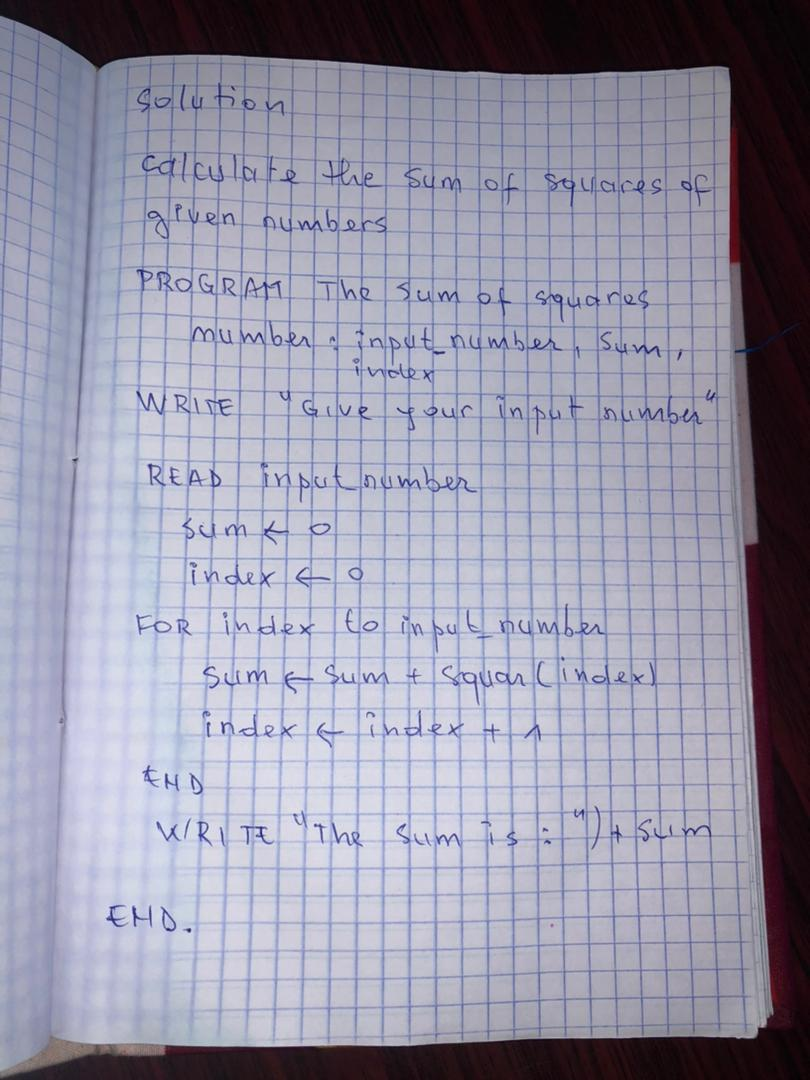 Solution
calculate the sum of squares of
given numbers
PROGRAM The sum of squares
number : input_number, sum,
index
WRITE "Give your input number"
READ input_number
sum ← 0
index ← 0
FOR index to input_number
sum ← sum + squar(index)
index ← index + 1
END
WRITE "The sum is : ") + sum
END.